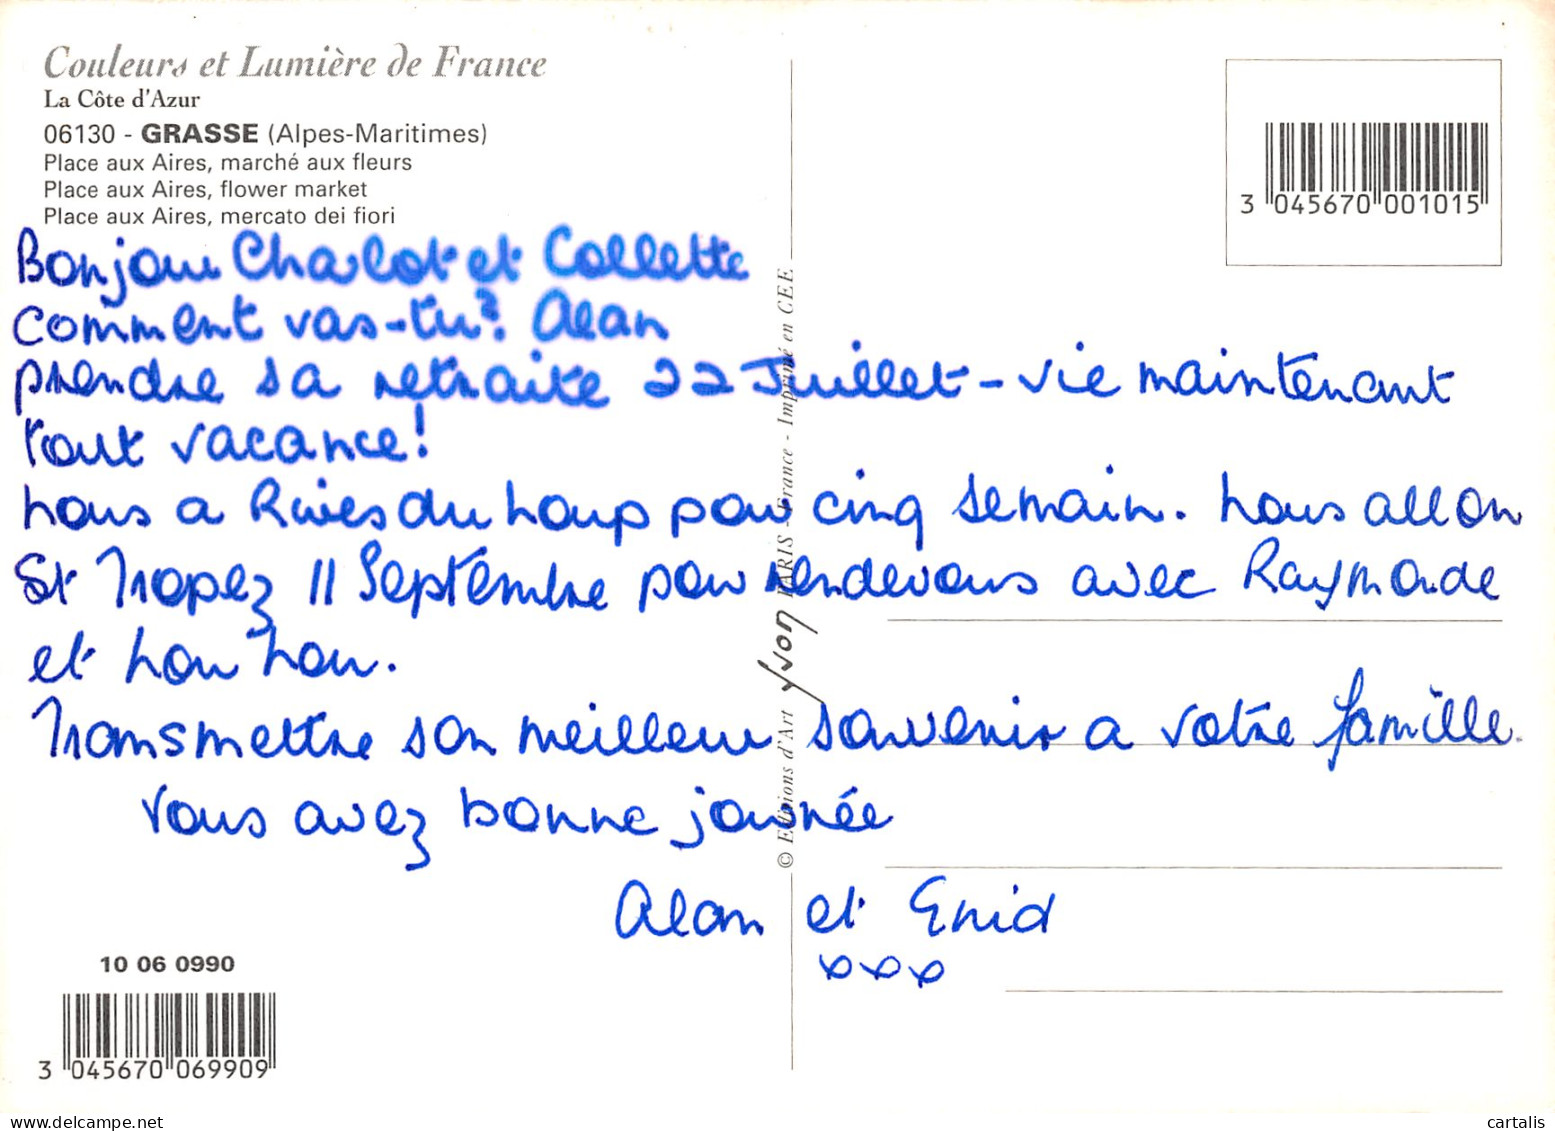 Couleurs et Lumière de France
La Côte d'Azur
06130 - GRASSE (Alpes-Maritimes)
Place aux Aires, marché aux fleurs
Place aux Aires, flower market
Place aux Aires, mercato dei fiori
3 045670 001015
Bonjour Charlot et Collette
comment vas-tu? Alan
prendre sa retraite 22 Juillet - vie maintenant
tout vacance!
nous a Rives du Loup pour cinq semain. nous allon
St Tropez 11 Septembre pour rendevous avec Raymonde
et Nou Nou.
Transmettre son meilleur souvenir a votre famille.
vous avez bonne journée
Alan et Enid
xxx
© Editions d'Art Yvon PARIS - France - Imprimé en CEE
10 06 0990
3 045670 069909
cartalis